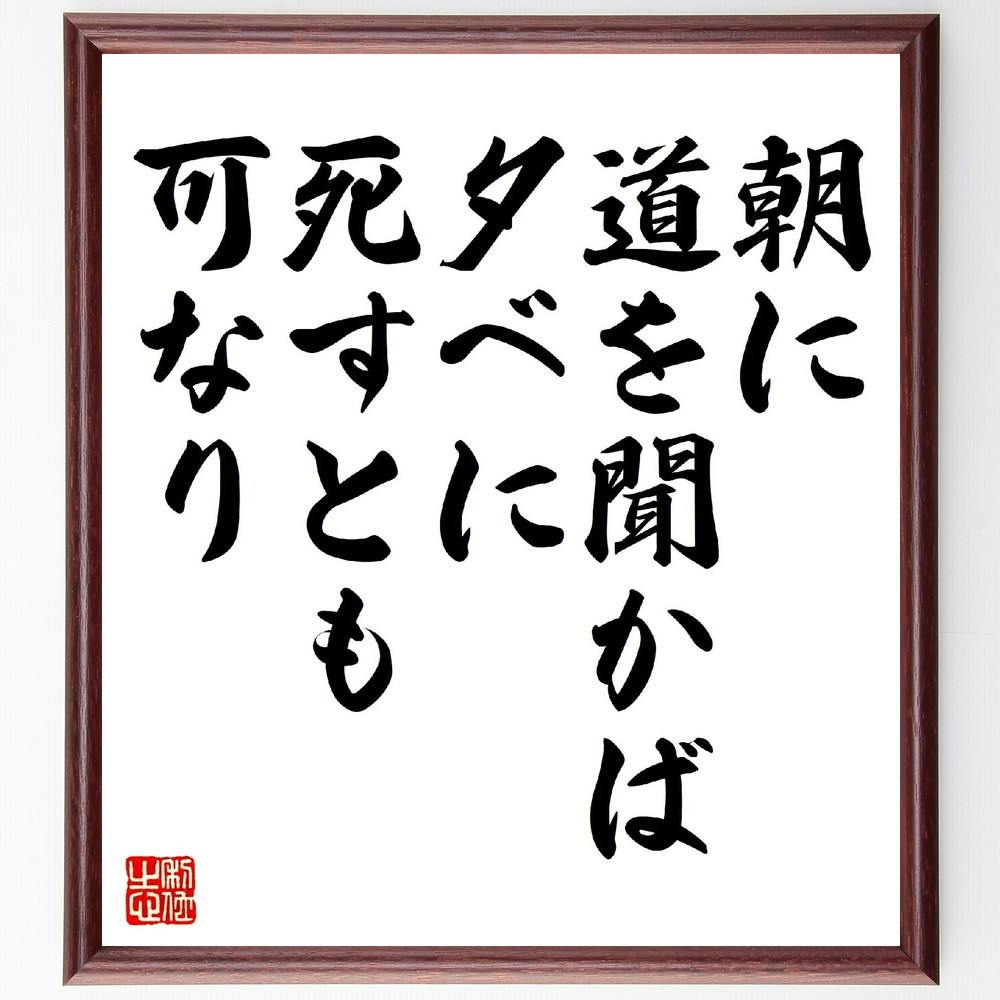 朝に
道を聞かば
夕べに
死すとも
可なり